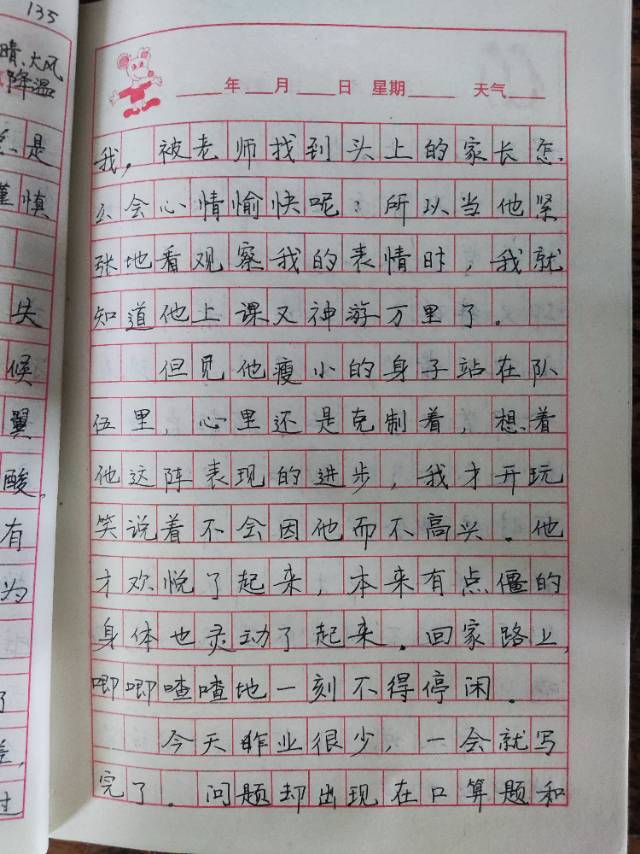 135
晴、大风
降温
是
慎
失
候
翼
酸。
有
为
了
差,
过
年 月 日 星期 天气
我,被老师找到头上的家长怎
么会心情愉快呢?所以当他紧
张地看观察我的表情时,我就
知道他上课又神游万里了.
但见他瘦小的身子站在队
伍里,心里还是克制着,想着
他这阵表现的进步,我才开玩
笑说着不会因他而不高兴.他
才欢悦了起来,本来有点僵的
身体也灵动了起来.回家路上,
唧唧喳喳地一刻不得停闲.
今天昨业很少,一会就写
完了.问题却出现在口算题和